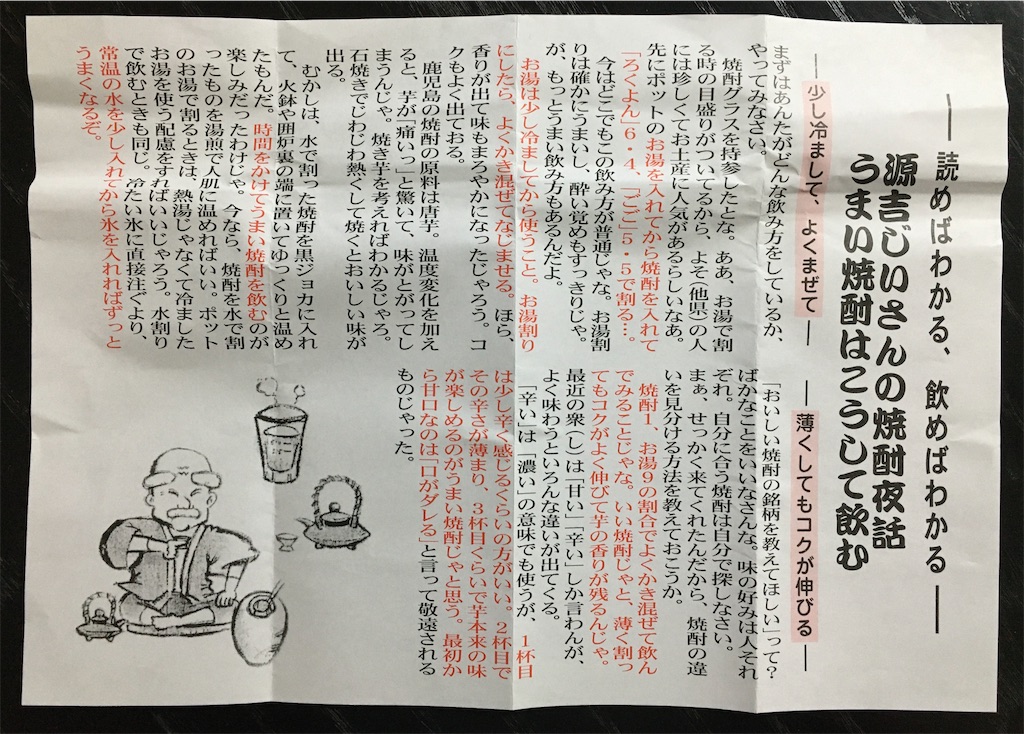 ―読めばわかる、飲めばわかる―
源吉じいさんの焼酎夜話
うまい焼酎はこうして飲む
―少し冷まして、よくまぜて―
まずはあんたがどんな飲み方をしているか、
やってみなさい。
焼酎グラスを持参したとな。ああ、お湯で割
る時の目盛りがついてるから、よそ(他県)の人
には珍しくてお土産に人気があるらしいなぁ。
先にポットのお湯を入れてから焼酎を入れて
「ろくよん」6・4、「ごご」5・5で割る…。
今はどこでもこの飲み方が普通じゃな。お湯割
りは確かにうまいし、酔い覚めもすっきりじゃ。
が、もっとうまい飲み方もあるんだよ。
お湯は少し冷ましてから使うこと。お湯割り
にしたら、よくかき混ぜてなじませる。ほら、
香りが出て味もまろやかになったじゃろう。コ
クもよく出ておる。
鹿児島の焼酎の原料は唐芋。温度変化を加え
ると、芋が「痛いっ」と驚いて、味がとがってし
まうんじゃ。焼き芋を考えればわかるじゃろ。
石焼きでじわじわ熱くして焼くとおいしい味が
出る。
むかしは、水で割った焼酎を黒ジョカに入れ
て、火鉢や囲炉裏の端に置いてゆっくりと温め
たもんだ。時間をかけてうまい焼酎を飲むのが
楽しみだったわけじゃ。今なら、焼酎を水で割
ったものを湯煎で人肌に温めればいい。ポット
のお湯で割るときは、熱湯じゃなくて冷ました
お湯を使う配慮をすればいいじゃろう。水割り
で飲むときも同じ。冷たい氷に直接注ぐより、
常温の水を少し入れてから氷を入れればずっと
うまくなるぞ。
―薄くしてもコクが伸びる―
「おいしい焼酎の銘柄を教えてほしい」って?
ばかなことをいいなさんな。味の好みは人それ
ぞれ。自分に合う焼酎は自分で探しなさい。
まぁ、せっかく来てくれたんだから、焼酎の違
いを見分ける方法を教えておこうか。
焼酎1、お湯9の割合でよくかき混ぜて飲ん
でみることじゃな。いい焼酎じゃと、薄く割っ
てもコクがよく伸びて芋の香りが残るんじゃ。
最近の衆(し)は「甘い」「辛い」しか言わんが、
よく味わうといろんな違いが出てくる。
「辛い」は「濃い」の意味でも使うが、1杯目
は少し辛く感じるくらいの方がいい。2杯目で
その辛さが薄まり、3杯目くらいで芋本来の味
が楽しめるのがうまい焼酎じゃと思う。最初か
ら甘口なのは「口がダレる」と言って敬遠される
ものじゃった。